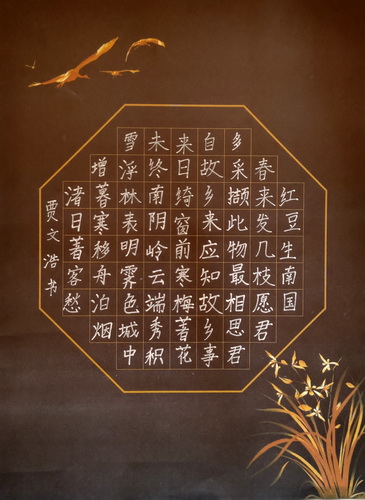 红豆生南国
春来发几枝愿君
多采撷此物最相思君
自故乡来应知故乡事
来日绮窗前寒梅著花
未终南阴岭云端秀积
雪浮林表明霁色城中
增暮寒移舟泊烟
渚日著客愁
贾文浩书